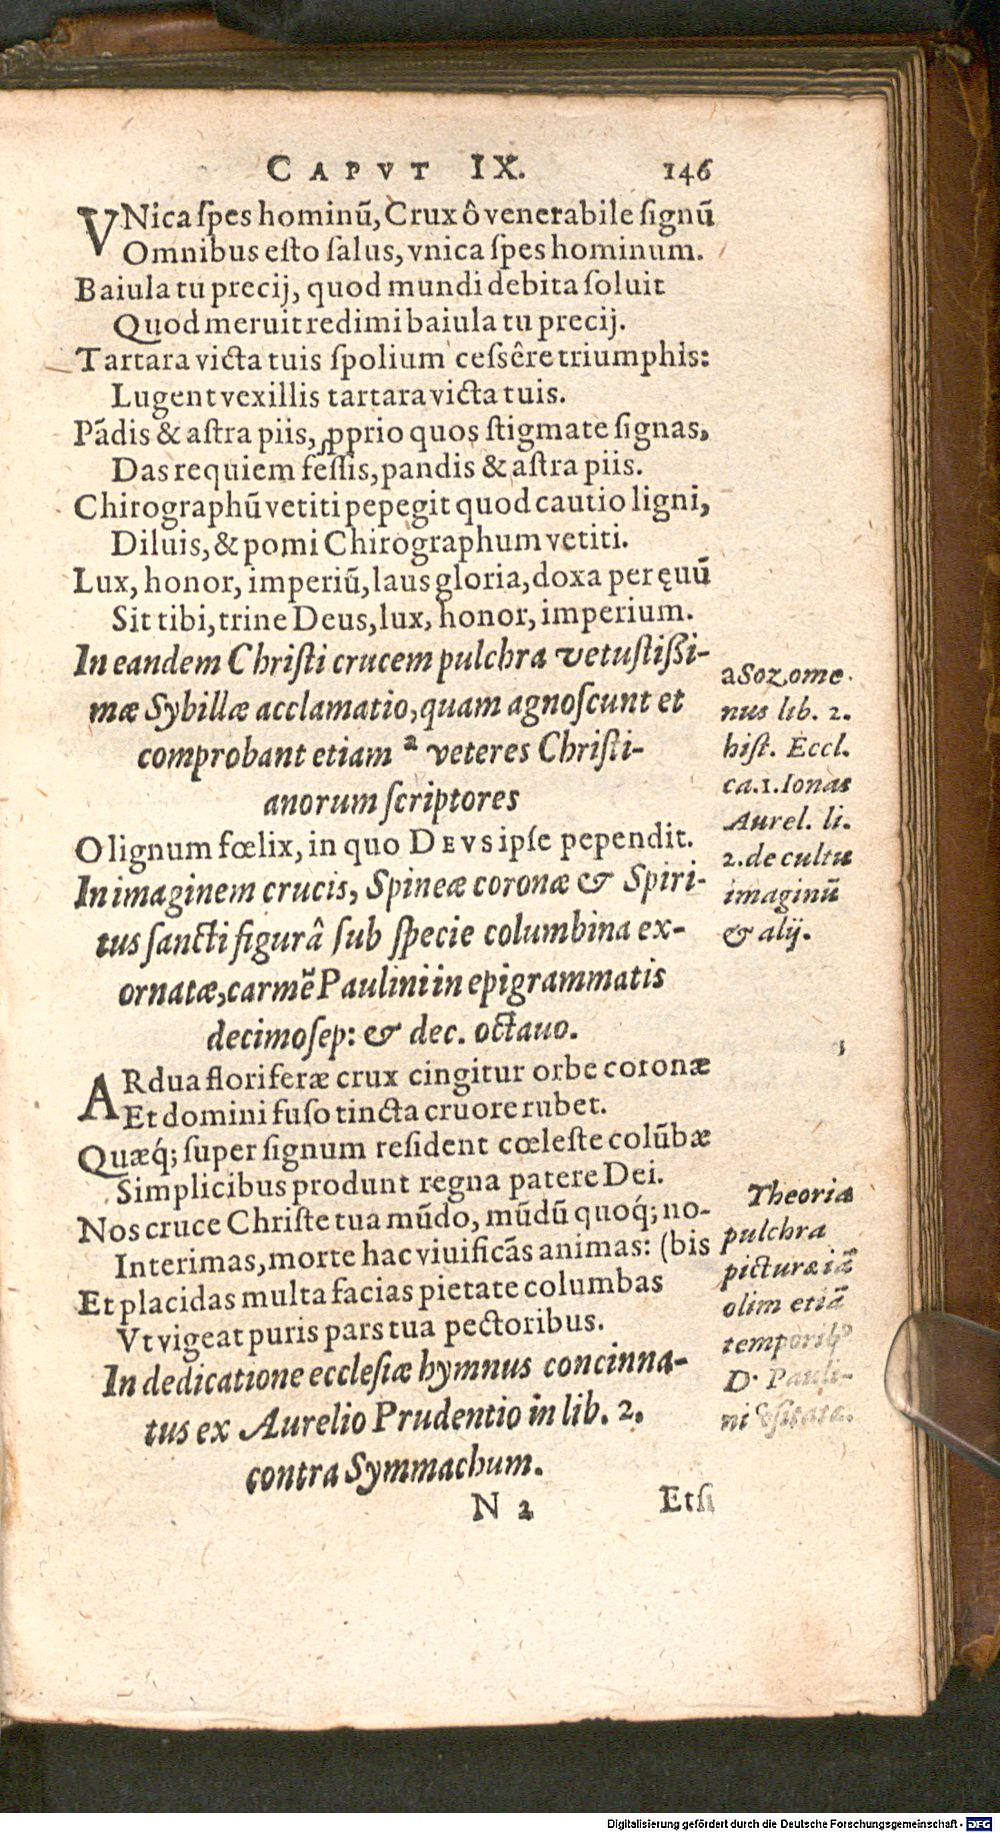 CAPVT IX. 146
VNica ſpes hominũ, Crux ô venerabile ſignũ
Omnibus eſto ſalus, vnica ſpes hominum.
Baiula tu precij, quod mundi debita ſoluit
Quod meruit redimi baiula tu precij.
Tartara victa tuis ſpolium ceſsêre triumphis:
Lugent vexillis tartara victa tuis.
Pãdis & aſtra piis, ꝓprio quos ſtigmate ſignas,
Das requiem feſſis, pandis & aſtra piis.
Chirographũ vetiti pepegit quod cautio ligni,
Diluis, & pomi Chirographum vetiti.
Lux, honor, imperiũ, laus gloria, doxa per ęuũ
Sit tibi, trine Deus, lux, honor, imperium.
In eandem Chriſti crucem pulchra vetuſtißi-
mæ Sybillæ acclamatio, quam agnoſcunt et
comprobant etiam ᵃ veteres Chriſti-
anorum ſcriptores
O lignum fœlix, in quo DEVS ipſe pependit.
In imaginem crucis, Spineæ coronæ & Spiri-
tus ſancti figurâ ſub ſpecie columbina ex-
ornatæ, carmẽ Paulini in epigrammatis
decimoſep: & dec. octauo.
ARdua floriferæ crux cingitur orbe coronæ
Et domini fuſo tincta cruore rubet.
Quæq́; ſuper ſignum reſident cœleſte colũbæ
Simplicibus produnt regna patere Dei.
Nos cruce Chriſte tua mũdo, mũdũ quoq́; no-
Interimas, morte hac viuificãs animas: (bis
Et placidas multa facias pietate columbas
Vt vigeat puris pars tua pectoribus.
In dedicatione eccleſiæ hymnus concinna-
tus ex Aurelio Prudentio in lib. 2.
contra Symmachum.
N 2 Etſi
a Sozome-
nus lib. 2.
hiſt. Eccl.
ca. 1. Ionas
Aurel. li.
2. de cultu
imaginũ
& alij.
Theoria
pulchra
picturæ iã
olim etiã
temporibꝰ
D. Pauli-
ni vſitata.
Digitalisierung gefördert durch die Deutsche Forschungsgemeinschaft - DFG